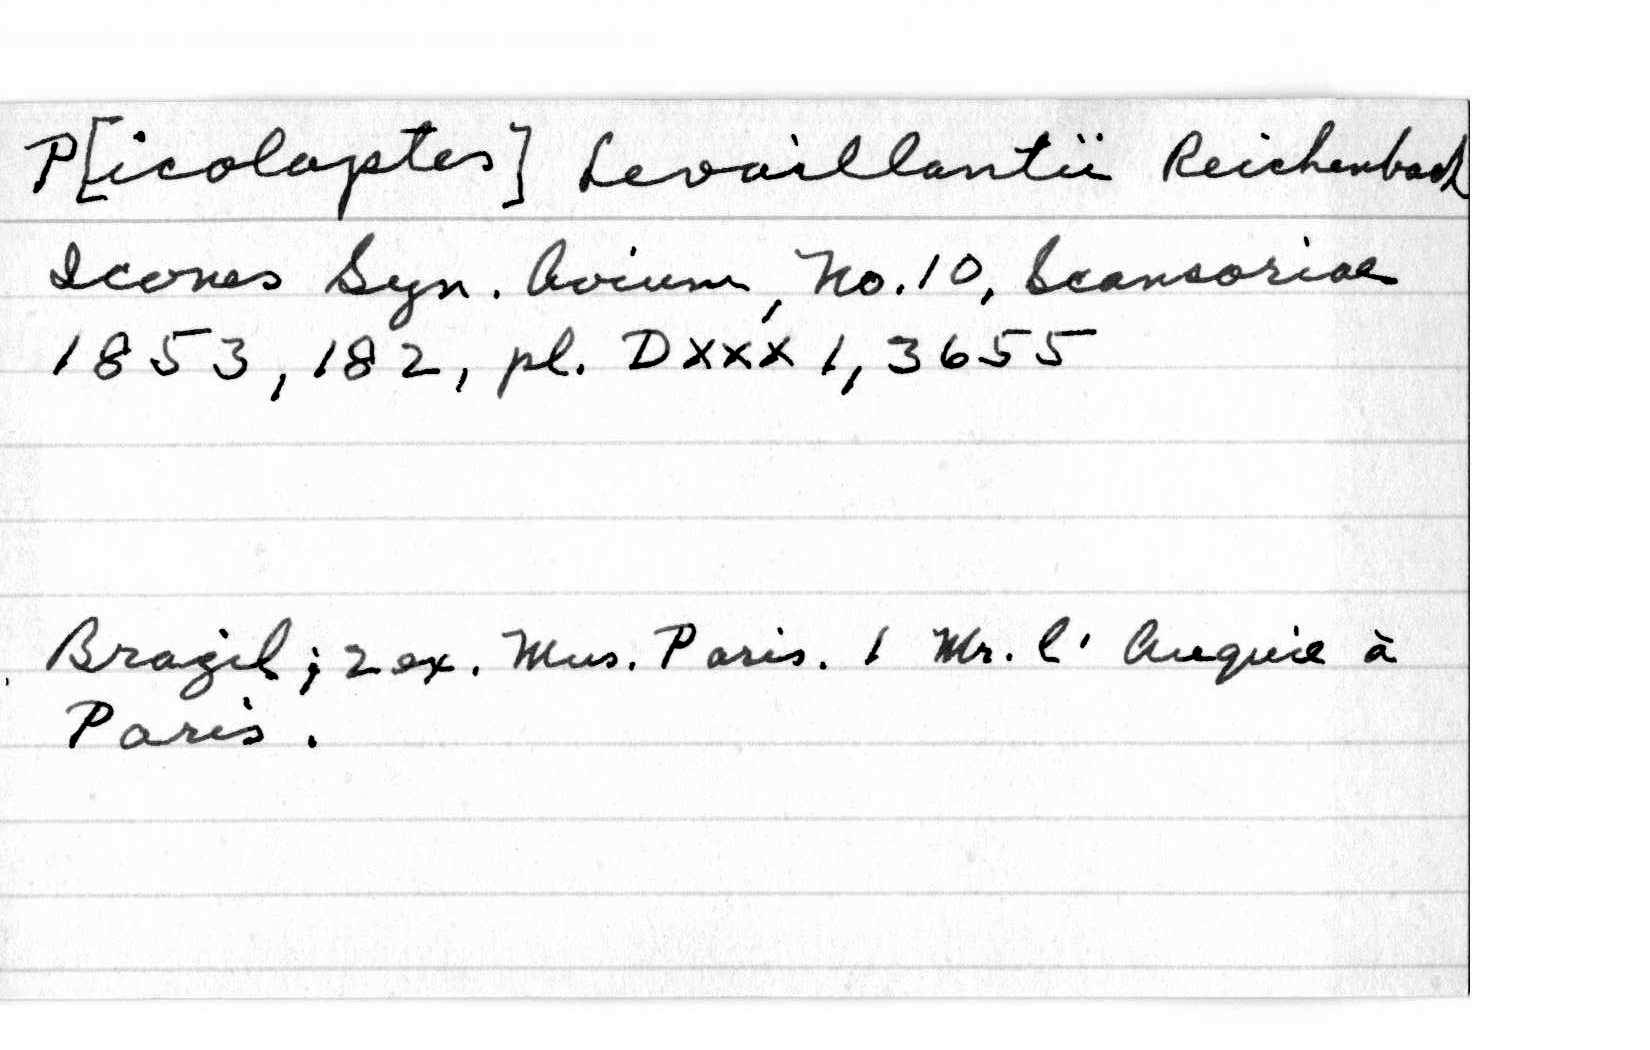 P[icolaptes] Levaillantii Reichenbach
Icones Syn. Avium, No. 10, Scansoriae
1853, 182, pl. DXXX1, 3655
Brazil; 2 ex. Mus. Paris. 1 Mr. l' Auguie à
Paris.